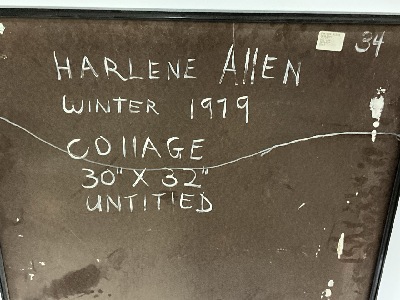 34
HARLENE AllEN
WINTER 1979
COllAGE
30" X 32"
UNTITlED